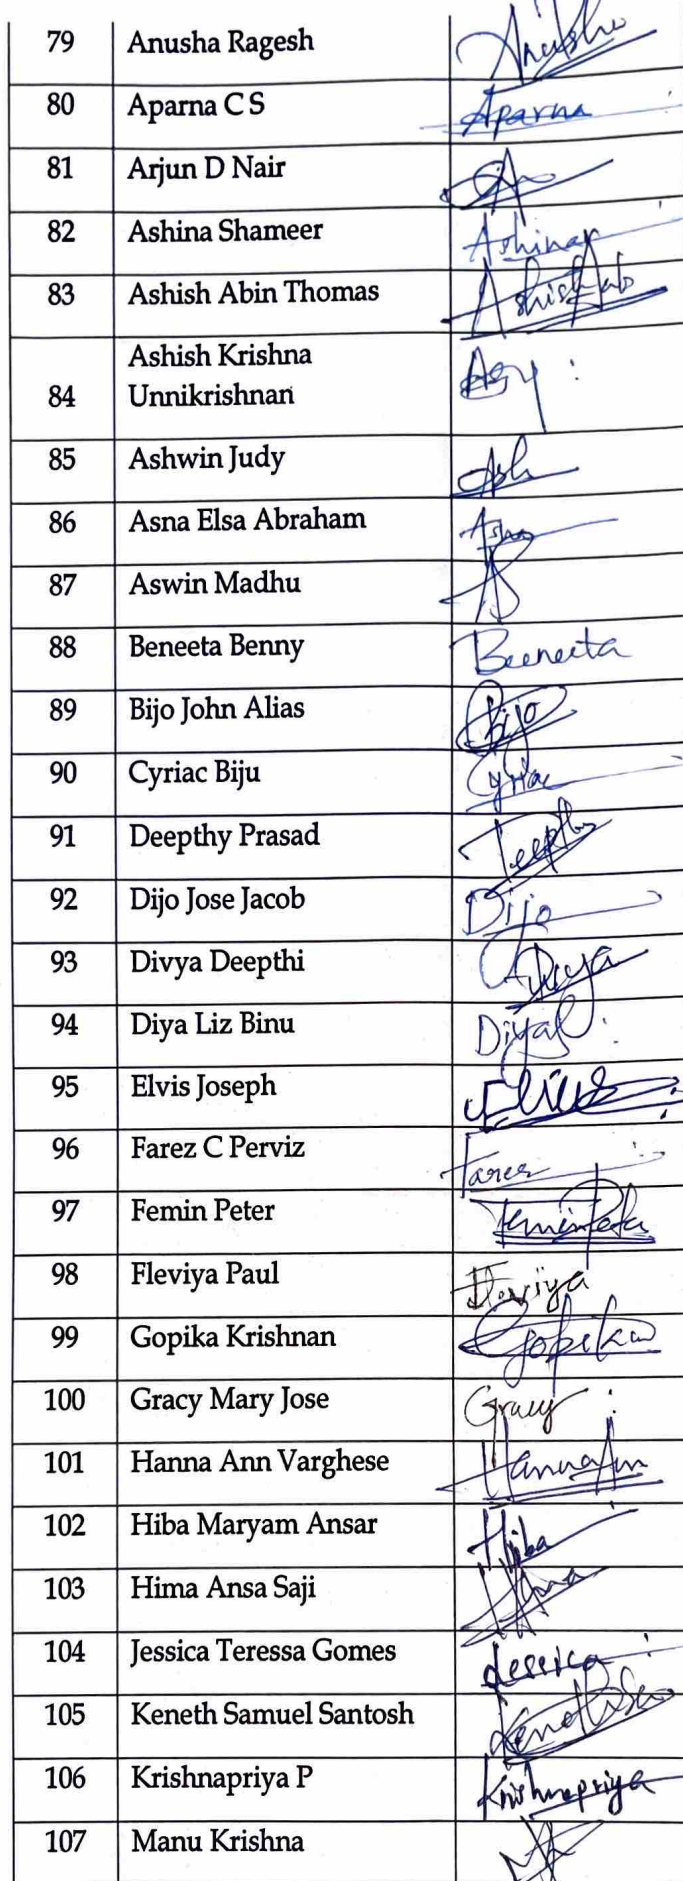 79 Anusha Ragesh Anusha
80 Aparna C S Aparna
81 Arjun D Nair
82 Ashina Shameer Ashina
83 Ashish Abin Thomas Ashish Ab
Ashish Krishna
84 Unnikrishnan
85 Ashwin Judy Ash
86 Asna Elsa Abraham Asna
87 Aswin Madhu
88 Beneeta Benny Beneeta
89 Bijo John Alias Bijo
90 Cyriac Biju Cyriac
91 Deepthy Prasad Deepthy
92 Dijo Jose Jacob Dijo
93 Divya Deepthi Divya
94 Diya Liz Binu Diya
95 Elvis Joseph Elvis
96 Farez C Perviz Farez
97 Femin Peter Femin Peter
98 Fleviya Paul Fleviya
99 Gopika Krishnan Gopika
100 Gracy Mary Jose Gracy
101 Hanna Ann Varghese Hanna Ann
102 Hiba Maryam Ansar Hiba
103 Hima Ansa Saji Hima
104 Jessica Teressa Gomes Jessica
105 Keneth Samuel Santosh
106 Krishnapriya P Krishnapriya
107 Manu Krishna